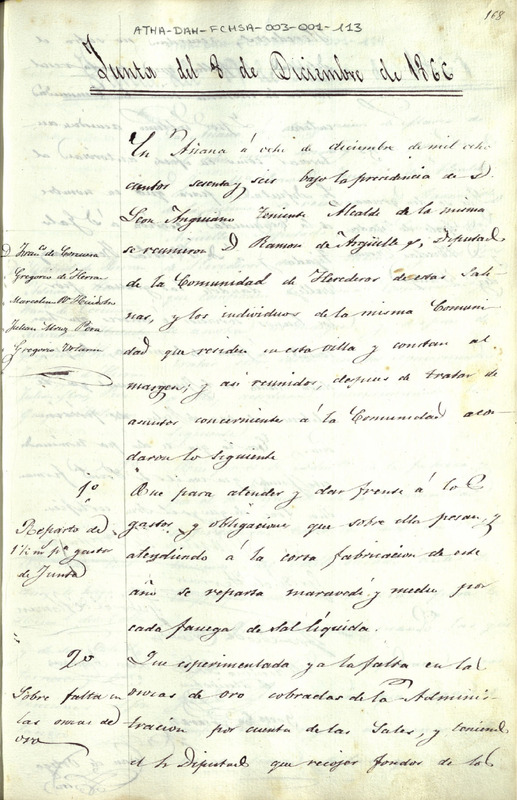 168
ATHA-DAH-FCHSA-003-001-113
Junta del 8 de Diciembre de 1866
En Añana á ocho de diciembre de mil ocho
cientos sesenta y seis bajo la presidencia de D.
Leon Angniano teniente Alcalde de la misma
se reunieron D Ramon de Argüelles, Diputado
de la Comunidad de Herederos de estas Sali
nas, y los individuos de la misma Comuni
dad que residen en esta villa y constan al
margen; y asi reunidos, despues de tratar de
asuntos concernientes á la Comunidad acor
daron lo siguiente
D. Franco de
Gregorio de Herran
Marcelino
Julian
Gregorio
1o
Que para atender y dar frente á los
gastos y obligaciones que sobre ella pesan, y
atendiendo á la corta fabricacion de este
año se reparta maravedi y medio por
cada fanega de sal líquida.
Reparto de
1½ m pa gastos
de Junta
2o
Que esperimentada ya la falta en las
onzas de oro cobradas de la Adminis-
tracion por cuenta de las Sales, y teniend
el Sr Diputado que recojer fondos de la
Sobre falta en
las onzas de
oro